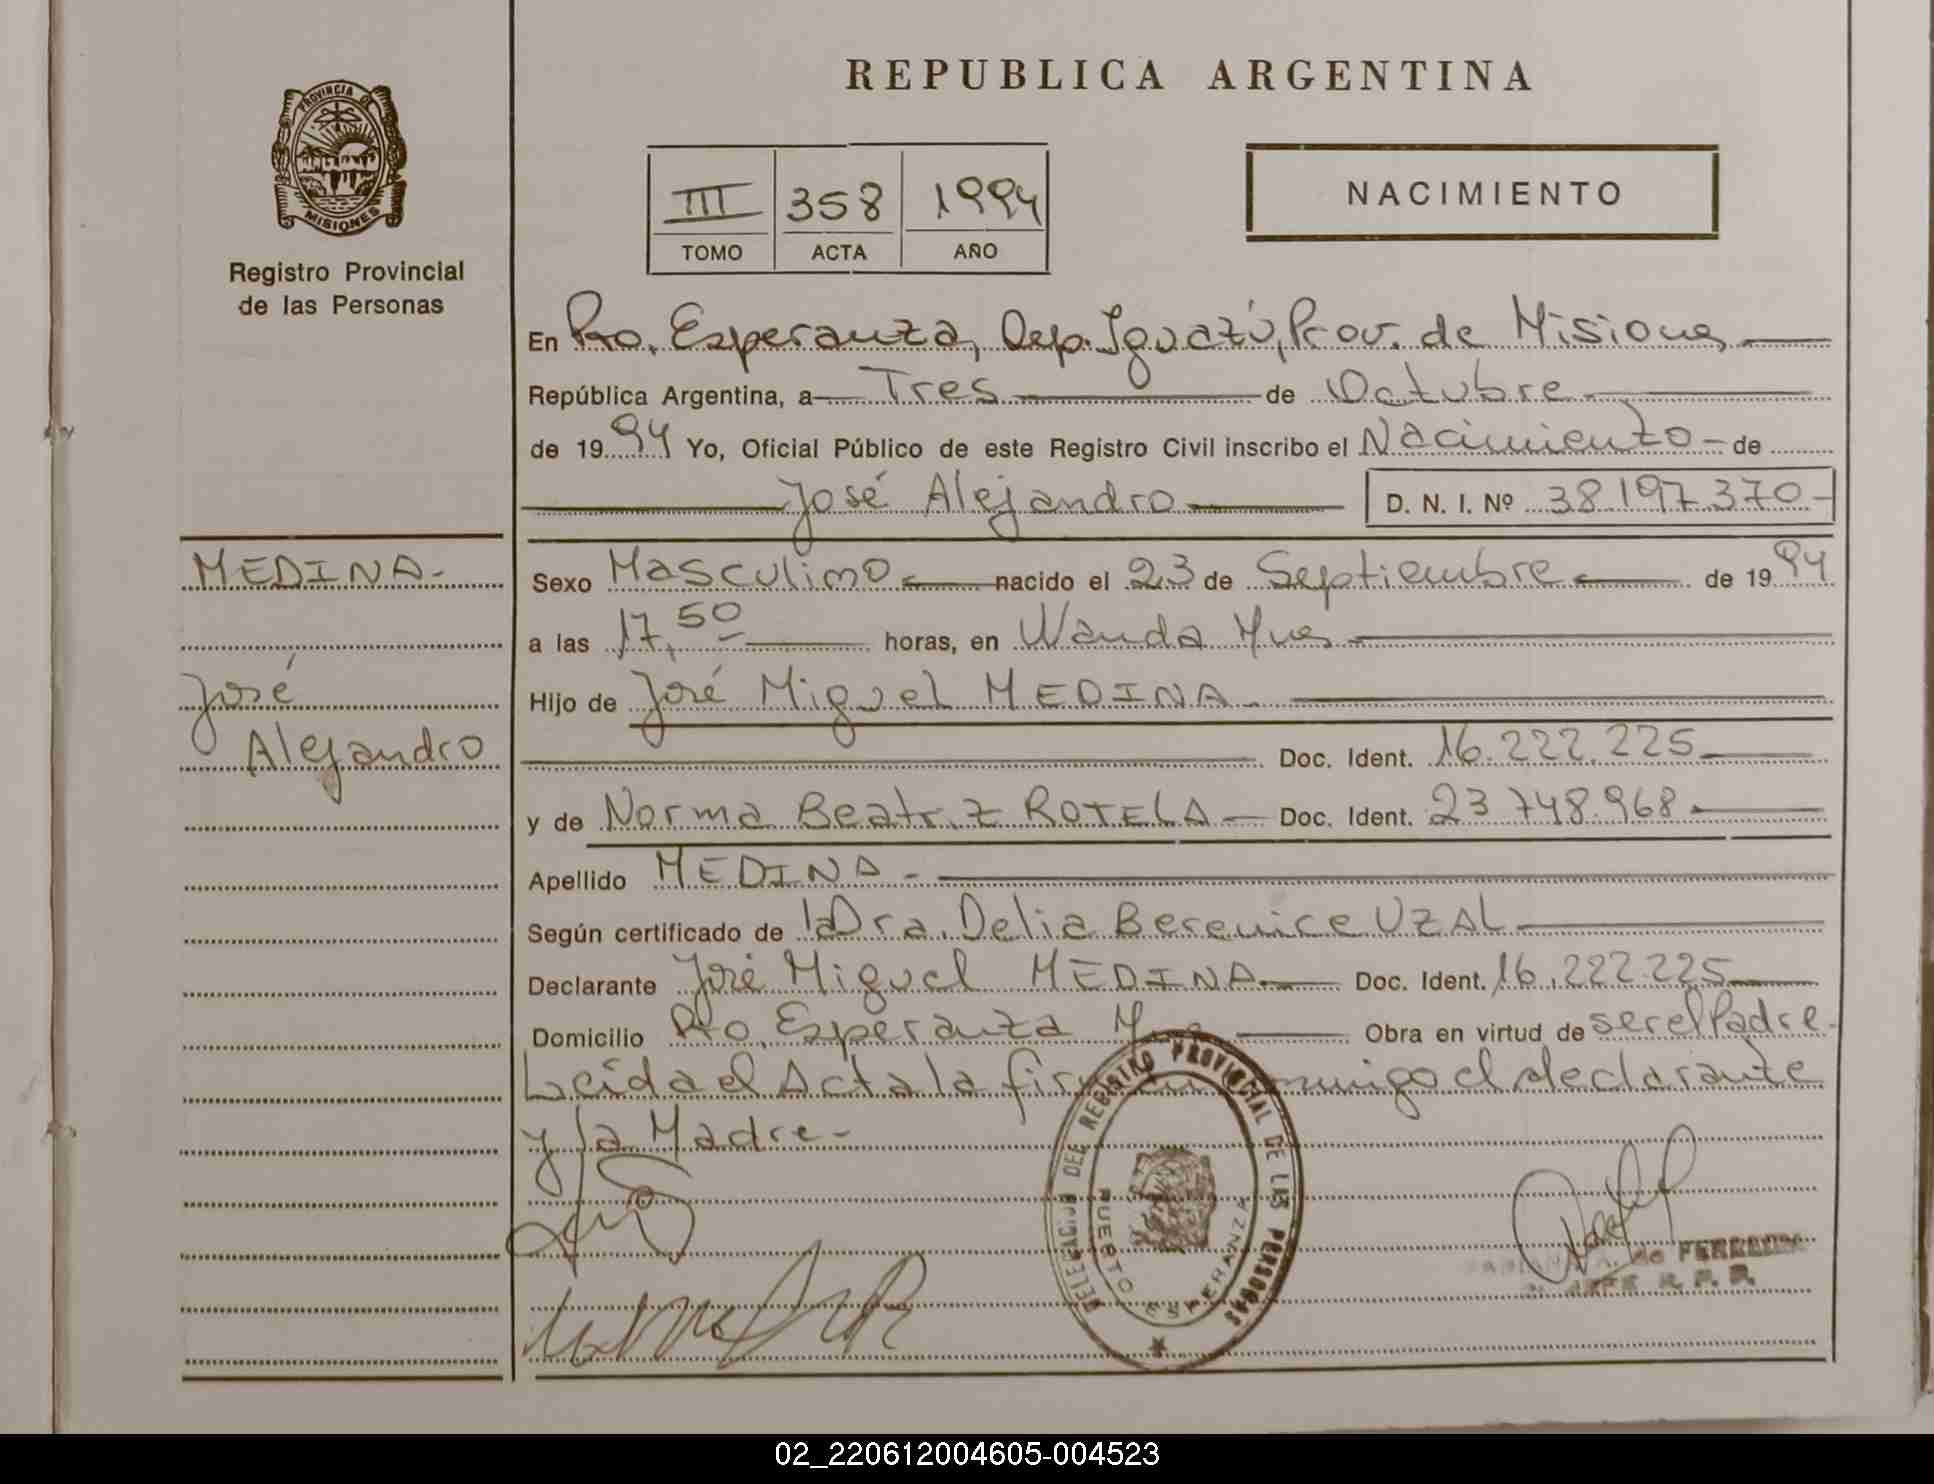 REPUBLICA ARGENTINA
PROVINCIA DE
MISIONES
Registro Provincial
de las Personas
III 358 1994
TOMO ACTA AÑO
NACIMIENTO
En Pto. Esperanza, Dep. Iguazú, Prov. de Misiones
República Argentina, a Tres de Octubre
de 1994 Yo, Oficial Público de este Registro Civil inscribo el Nacimiento de
José Alejandro D. N. I. Nº 38197370-
MEDINA-
José
Alejandro
Sexo Masculino nacido el 23 de Septiembre de 1994
a las 17,50 horas, en Wanda Mnes
Hijo de José Miguel MEDINA
Doc. Ident. 16.222.225
y de Norma Beatriz ROTELA Doc. Ident. 23.748.968
Apellido MEDINA
Según certificado de la Dra. Delia Berenice UZAL
Declarante José Miguel MEDINA Doc. Ident. 16.222.225
Domicilio Pto. Esperanza Obra en virtud de ser el Padre
Leída el Acta la el declarante
y la Madre-
DELEGACION DEL REGISTRO PROVINCIAL DE LAS PERSONAS
PUERTO ESPERANZA
de FERREIRA
JEFE R. P. P.
02_220612004605-004523